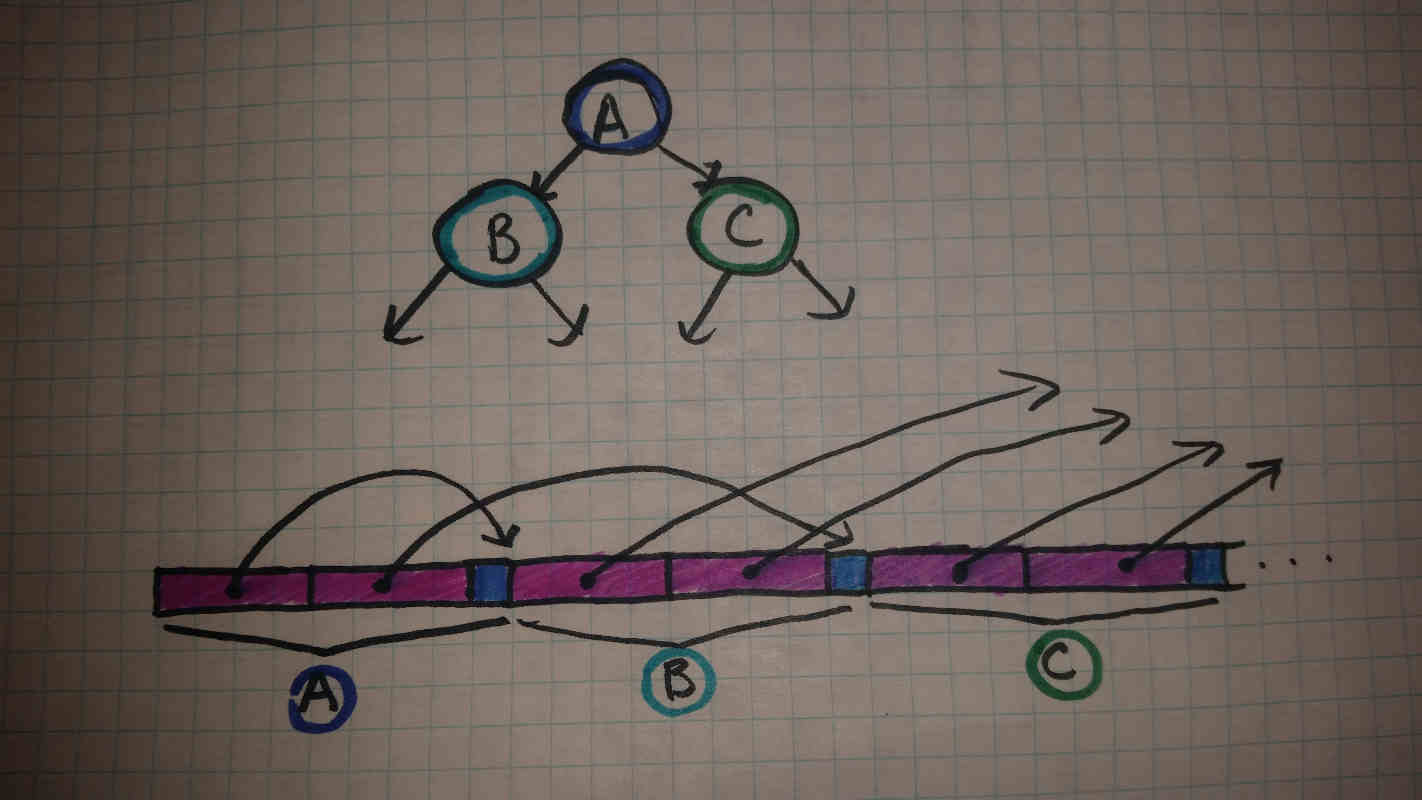 A
B C
A B C